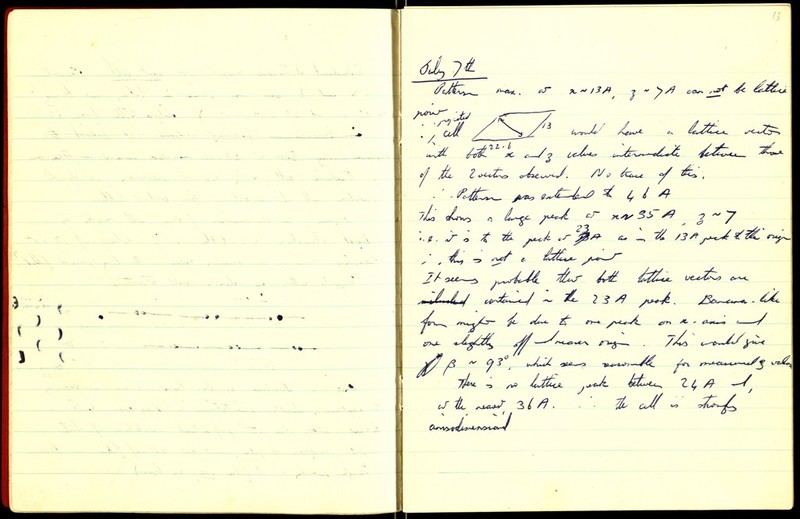 13
July 7th
Patterson max. at x ~ 13A, z ~ 7A can not be lattice
point
∴ projected
cell 13 would have a lattice vector
22.6
with both x and z values intermediate between those
of the 2 vectors observed. No trace of this.
∴ Patterson was extended to 46 A
This shows a large peak at x ~ 35 A, z ~ 7
i.e. it is to the peak at 23A as is the 13A peak to the origin
∴ this is not a lattice point
It seems probable that both lattice vectors are
contained in the 23 A peak. Banana-like
form might be due to one peak on x-axis and
one slightly off nearer origin. This would give
β ~ 93°, which seems reasonable for measured z values
There is no lattice peak between 24 A and,
at the nearest, 36A. ∴ the cell is strongly
anisodimensional